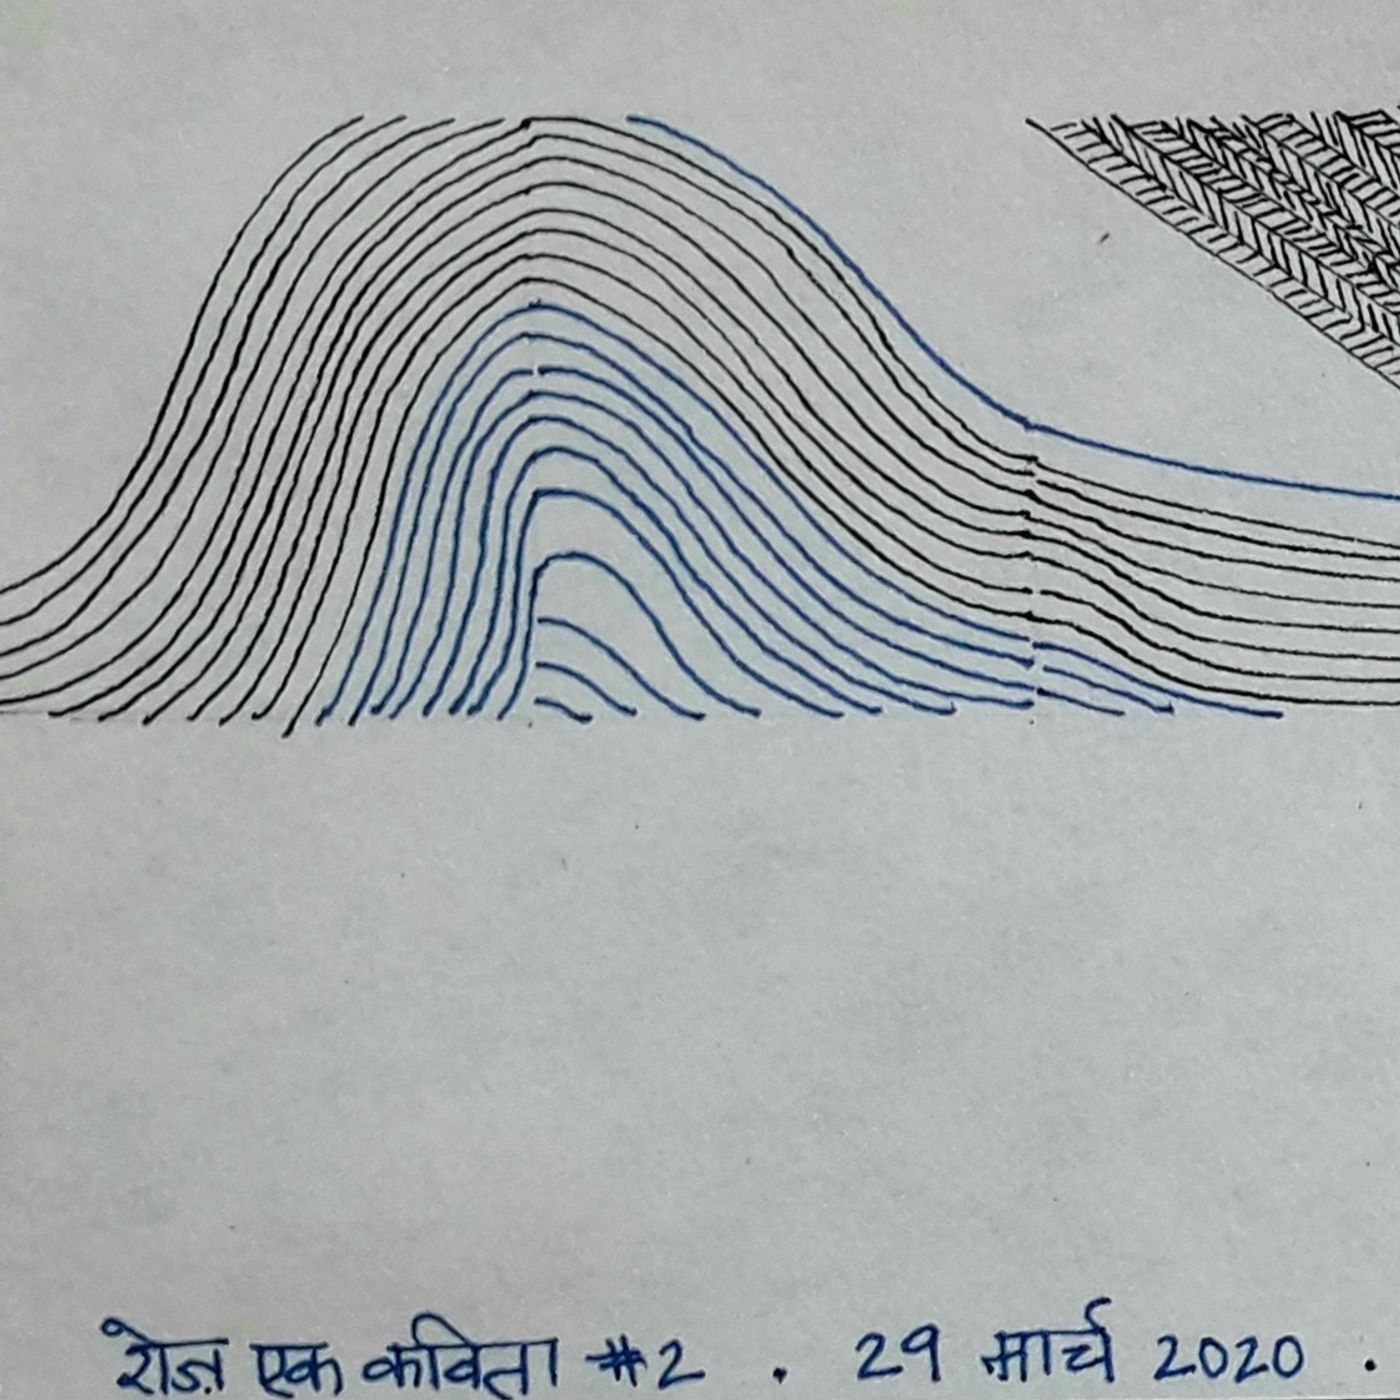 रोज़ एक कविता #2 . 29 मार्च 2020 .